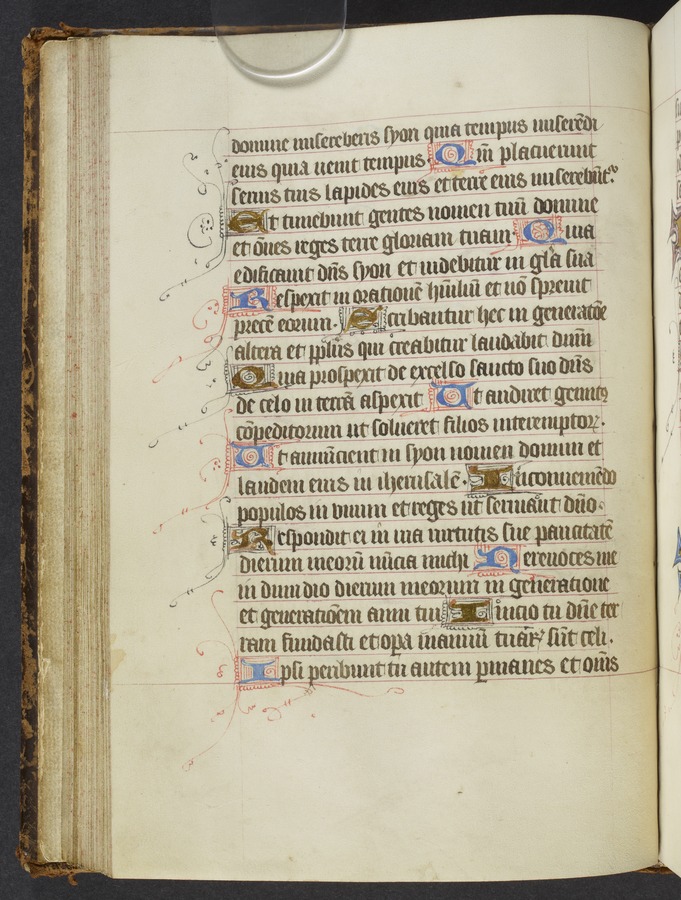 domine misereberis syon quia tempus miserēdi
eius quia uenit tempus. Qm̄ placuerunt
seruis tuis lapides eius et terre eius miserebūt᷑.
Et timebunt gentes nomen tuū domine
et om̄es reges terre gloriam tuam. Quia
edificauit dn̄s syon et uidebitur in gl̄a sua
Respexit in orationē hūiliū et nō spreuit
precē eorum. Scribantur hec in generatōe
altera et pp̄lus qui creabitur laudabit dn̄m
Quia prospexit de excelso sancto suo dn̄s
de celo in terrā aspexit Ut audiret gemitꝯ
cōpeditorum ut solueret filios interemptorꝝ.
Ut annūcient in syon nomen domini et
laudem eius in iherusalē. In conueniēdo
populos in vnum et reges ut seruiant dn̄o.
Respondit ei in uia uirtutis sue paucitatē
dierum meorū nūcia michi Ne reuoces me
in dimidio dierum meorum in generatione
et generatiōem anni tui Initio tu dn̄e ter
ram fundasti et opa manuū tuarꝝ sūt celi.
Ipsi peribunt tu autem ꝑmanes et om̄s